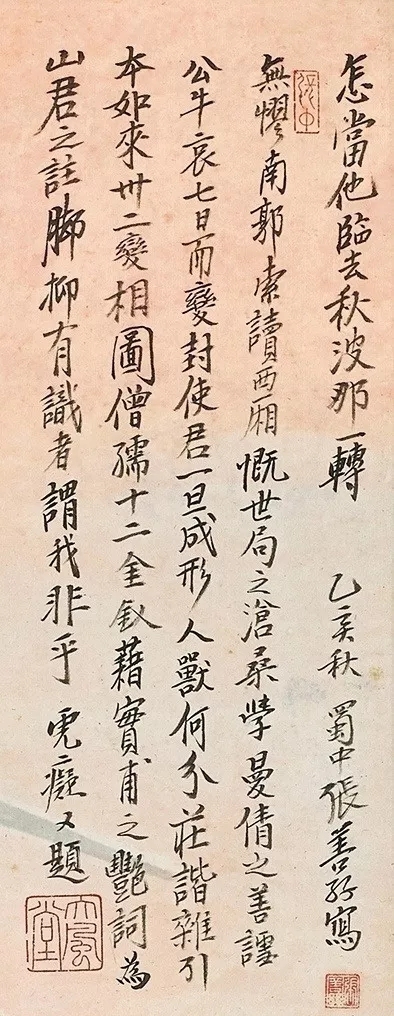 怎當他臨去秋波那一轉 乙亥秋 蜀中張善孖寫
無憀南郭索讀西廂慨世局之滄桑學曼倩之善謔
公牛哀七日而變封使君一旦成形人獸何分莊諧雜引
本如來卅二變相圖僧孺十二金釵藉實甫之豔詞為
山君之註腳抑有識者謂我非乎 虎癡又題
大風堂